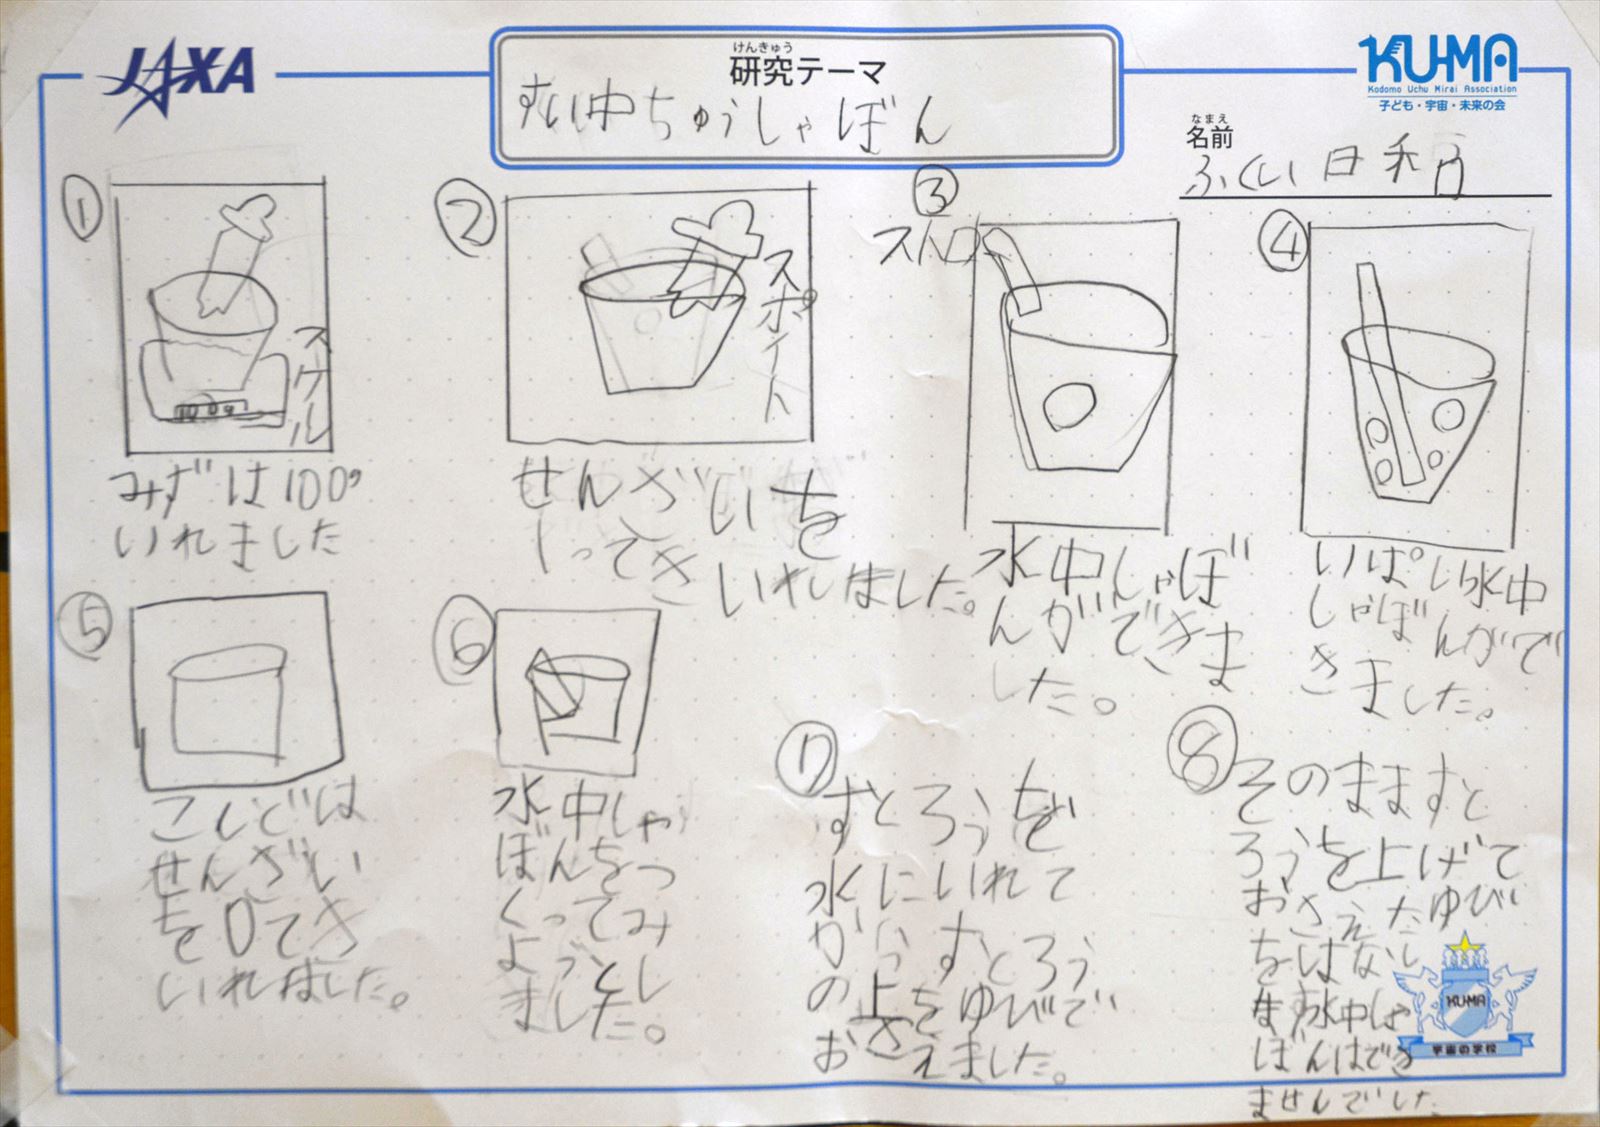 JAXA
けんきゅう
研究テーマ
すい中ちゅうしゃぼん
KUMA
Kodomo Uchu Mirai Association
子ども・宇宙・未来の会
なまえ
名前
ふくい日和
①
スケール
100g
みずは100g
いれました
②
スポイト
せんざいを
1ってき
いれました。
③
ストロー
水中しゃぼ
んができま
した。
④
いぱい水中
しゃぼんがで
きました。
⑤
こんどは
せんざい
を0てき
いれました。
⑥
水中しゃ
ぼんをつ
くってみ
ようとし
ました。
⑦
すとろうを
水にいれて
からすとろう
の上をゆびで
おさえました。
⑧
そのまますと
ろうを上げて
おさえたゆび
をはなし
ます水中しゃ
ぼんはでき
ませんでした
KUMA
宇宙の学校